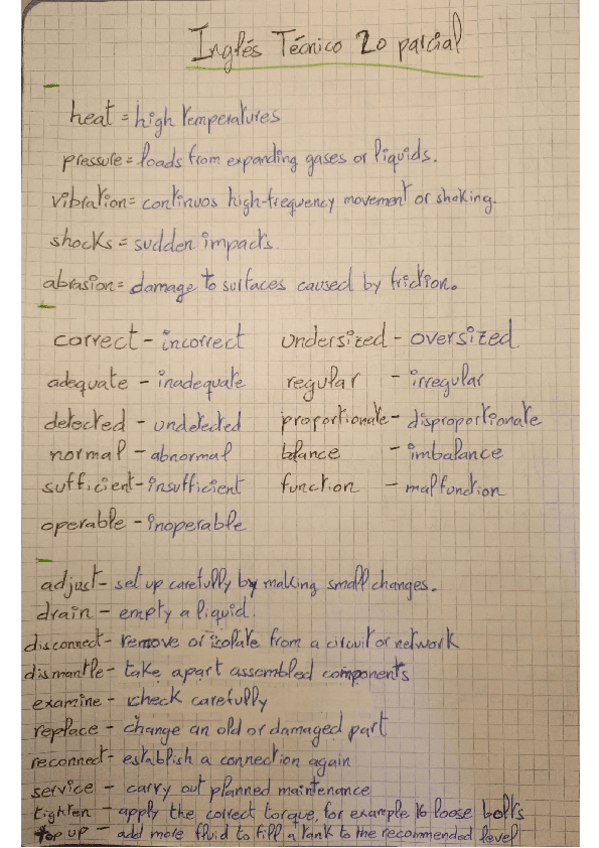 Inglés Técnico 2o parcial
heat = high temperatures
pressure = loads from expanding gases or liquids.
vibration = continuos high-frequency movement or shaking.
shocks = sudden impacts.
abrasion = damage to surfaces caused by friction.
correct - incorrect undersized - oversized
adequate - inadequate regular - irregular
detected - undetected proportionate - disproportionate
normal - abnormal balance - imbalance
sufficient - insufficient function - malfunction
operable - inoperable
adjust - set up carefully by making small changes.
drain - empty a liquid.
disconnect - remove or isolate from a circuit or network
dismantle - take apart assembled components
examine - check carefully
replace - change an old or damaged part
reconnect - establish a connection again
service - carry out planned maintenance
tighten - apply the correct torque, for example to loose bolts
top up - add more fluid to fill a tank to the recommended level